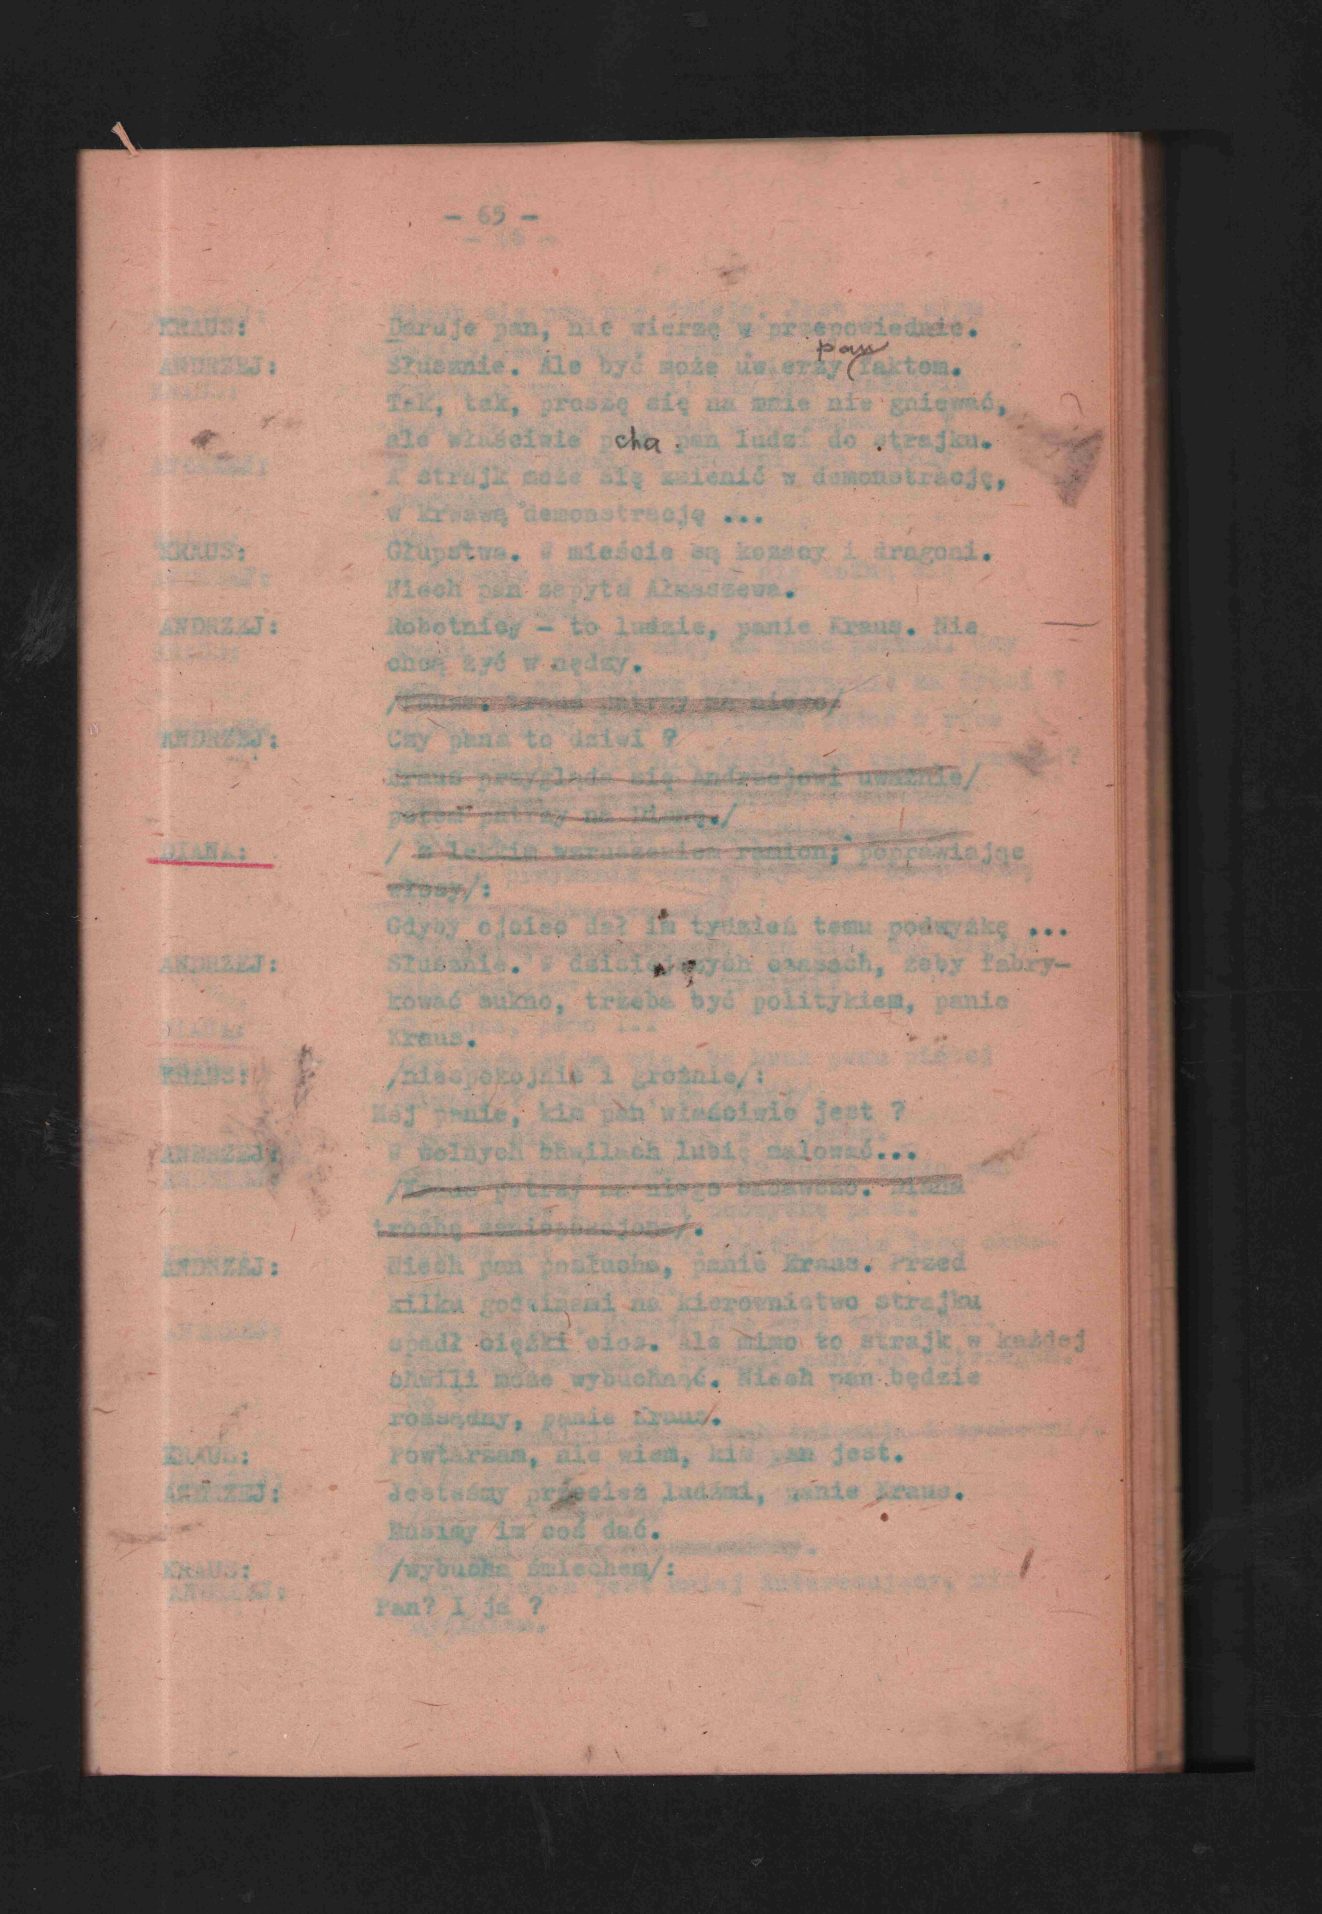 - 65 -
KRAUS: Daruje pan, nie wierzę w przepowiednie.
pan
ANDRZEJ: Słusznie. Ale być może uwierzy faktom.
Tak, tak, proszę się na mnie nie gniewać,
ale właściwie pcha pan ludzi do strajku.
A strajk może się zmienić w demonstrację,
w krwawą demonstrację ...
KRAUS: Głupstwa. W mieście są kozacy i dragoni.
Niech pan zapyta Ałmaszewa.
ANDRZEJ: Robotnicy - to ludzie, panie Kraus. Nie
chcą żyć w nędzy.
/Pauza. Kraus patrzy na niego/
ANDRZEJ: Czy pana to dziwi ?
Kraus przygląda się Andrzejowi uważnie/
potem patrzy na Dianę./
DIANA: / z lekkim wzruszeniem ramion; poprawiając
włosy/:
Gdyby ojciec dał im tydzień temu podwyżkę ...
ANDRZEJ: Słusznie. W dzisiejszych czasach, żeby fabry-
kować sukno, trzeba być politykiem, panie
Kraus.
KRAUS: /niespokojnie i groźnie/:
Mój panie, kim pan właściwie jest ?
ANDRZEJ: W wolnych chwilach lubię malować...
/Kraus patrzy na niego badawczo. Diana
trochę zaniepokojona/.
ANDRZEJ: Niech pan posłucha, panie Kraus. Przed
kilku godzinami na kierownictwo strajku
spadł ciężki cios. Ale mimo to strajk w każdej
chwili może wybuchnąć. Niech pan będzie
rozsądny, panie Kraus.
KRAUS: Powtarzam, nie wiem, kim pan jest.
ANDRZEJ: Jesteśmy przecież ludźmi, panie Kraus.
Musimy im coś dać.
KRAUS: /wybucha śmiechem/:
Pan? I ja ?